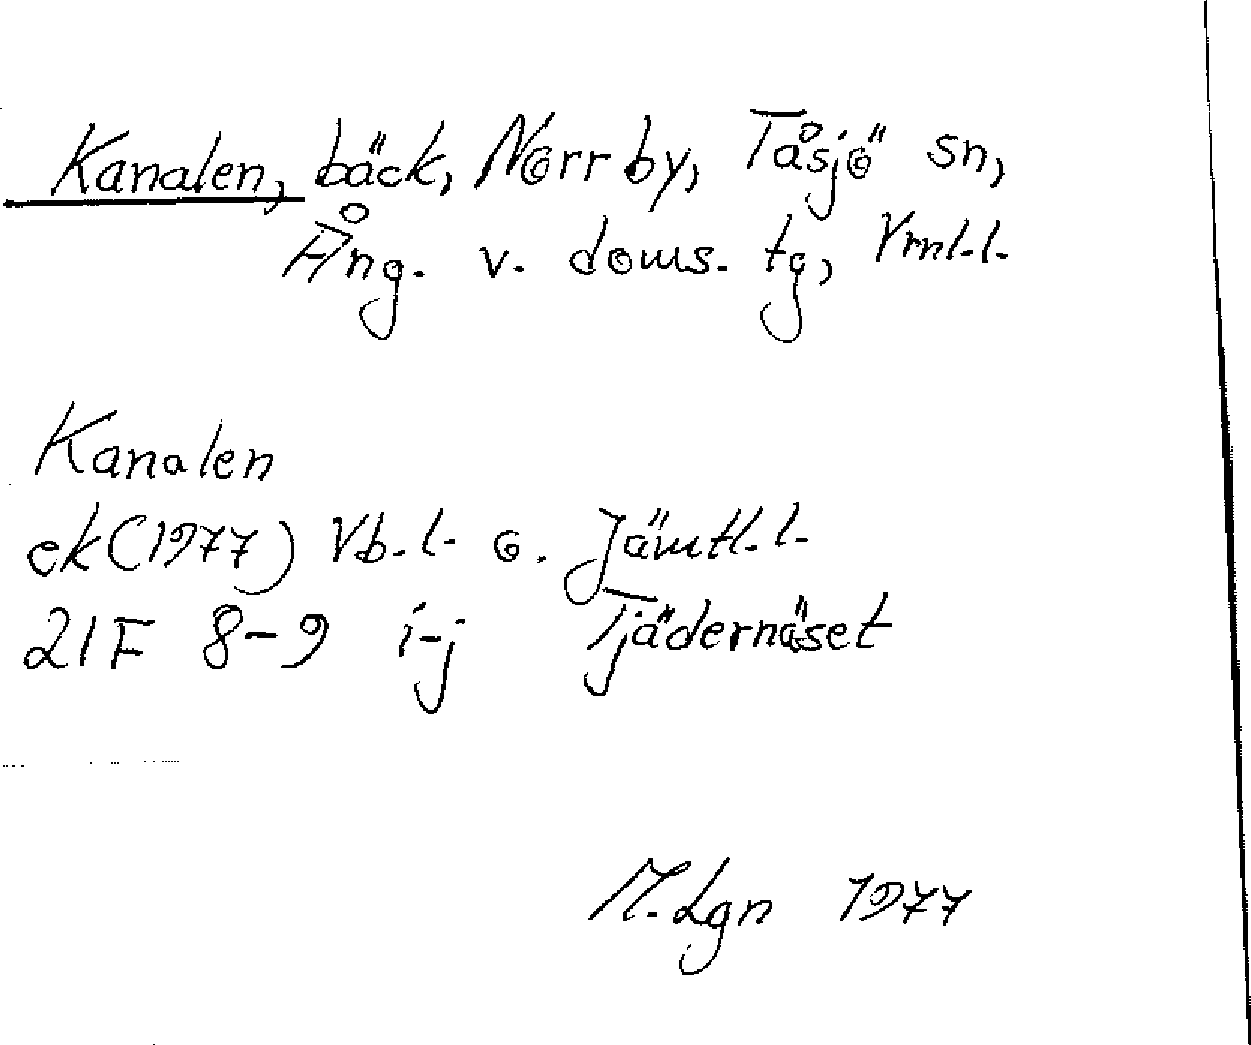 Kanalen, bäck, Norrby, Tåsjö sn,
Ång. v. doms. tg, Vrnl.l.
Kanalen
ek (1977) Vb.l. o. Jämtl.l.
21F 8-9 i-j Tjädernäset
M. Lgn 1977